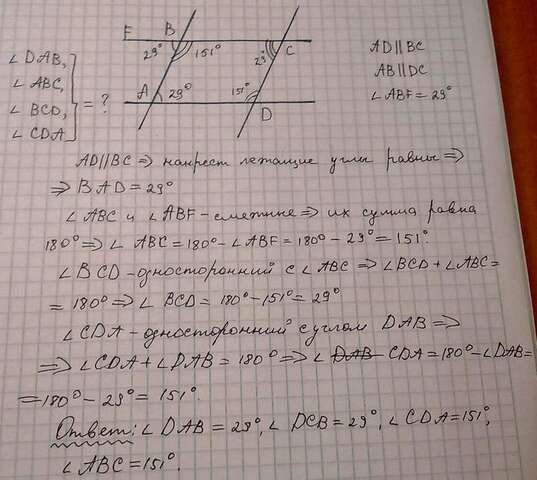 ∠DAB,
∠ABC,
∠BCD,
∠CDA
= ?
F B
29° 151° 29° C
A 29° 151°
D
AD||BC
AB||DC
∠ABF = 29°
AD||BC ⇒ накрест лежащие углы равны ⇒
⇒ BAD = 29°
∠ABC и ∠ABF - смежные ⇒ их сумма равна
180° ⇒ ∠ABC = 180° - ∠ABF = 180° - 29° = 151°.
∠BCD - односторонний с ∠ABC ⇒ ∠BCD + ∠ABC =
= 180° ⇒ ∠BCD = 180° - 151° = 29°
∠CDA - односторонний с углом DAB ⇒
⇒ ∠CDA + ∠DAB = 180° ⇒ ∠ DAB CDA = 180° - ∠DAB =
= 180° - 29° = 151°.
Ответ: ∠DAB = 29°, ∠DCB = 29°, ∠CDA = 151°,
∠ABC = 151°.